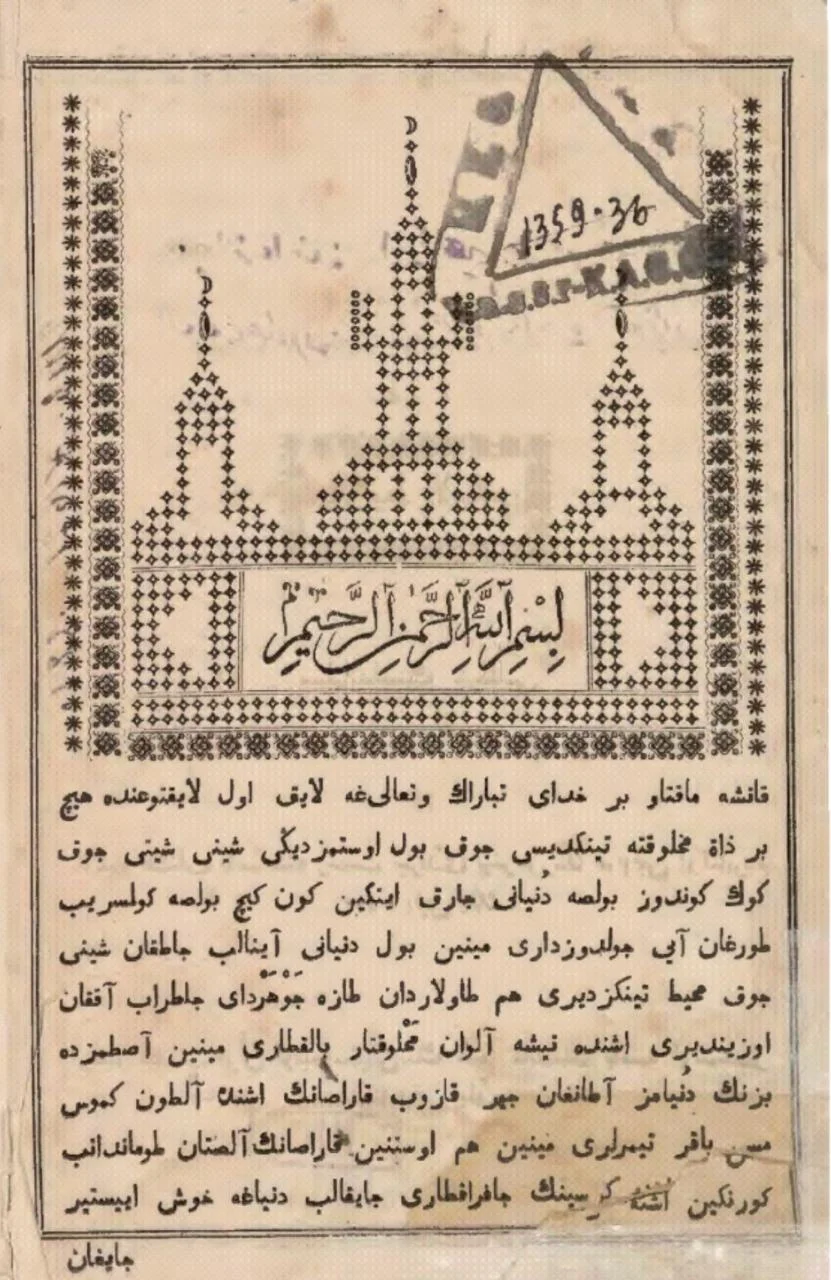 1359-36
بِسْمِ اللَّهِ الرَّحْمٰنِ الرَّحِيمِ
قانشه مافتاو بر خدای تبارك وتعالی‌غه لایق اول لایقتوعنده هیچ
بر ذاة مخلوقته تینکدیسی جوق بول اوستمزدیکی شینی شیتی جوق
کوك کوندوز بولصه دُنیانی جارق ایتکین کون کیچ بولصه کولسریب
طورغان آیی جولدوزداری مینین بول دنیانی آینالب جاطقان شینی
جوق محیط تینکزدیری هم طاولاردان طازه جَوْهَردای جاطراب آققان
اوزیندیری اشنده نیشه آلوان مَخْلوقتار بالقطاری مینین آصطمزده
بزنك دُنیامز آطانغان جهر قازوب قاراصانك اشندا آلطون کموس
مس باقر تیمرلری مینین هم اوستنین قاراصانك آلصتان طوماندانب
کورنکین اشته سینك جافراقطاری جایقالب دنیاغه خوش اییستیر
جایغان